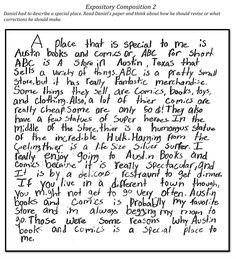 Expository Composition 2
Daniel had to describe a special place. Read Daniel's paper and think about how he should revise or what
corrections he should make.
A Place that is special to me is
Austin books and comics or, ABC for short
ABC is A Store in Austin, Texas that
Sells a variety of things. ABC is a pretty small
store, but it has really fantastic merchandise.
Some things they sell are Comics, books, toys,
and clothing. Also, a lot of their comics are
really cheap! Some are only 50¢! They also
have a few statues of Super heroes. In the
middle of the store, thier is a humongus statue
of the incredible Hulk. Hanging from the
Ceiling thier is a life Size Silver Surfer. I
really enjoy going to Austin Books and
Comics because it is really Spectacular, and
It is by a delicous restaraunt to get dinner.
If you live in a different town though,
you might not get to go very often. Austin
books and Comics is Probably my favorite
Store, and im always begging my mom to
go. Those were Some reasons why Austin
book and comics is a Special place to
me.